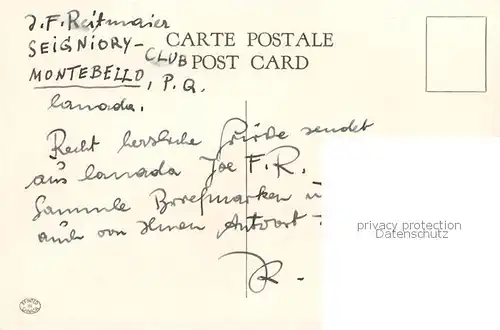 J. F. Reitmaier
SEIGNIORY-
CLUB
MONTEBELLO, P. Q.
Canada.
CARTE POSTALE
POST CARD
Recht herzliche Grüße sendet
aus Canada Joe F. R.
Sammle Briefmarken u
auch von Ihnen Antwort
privacy protection
Datenschutz
R.